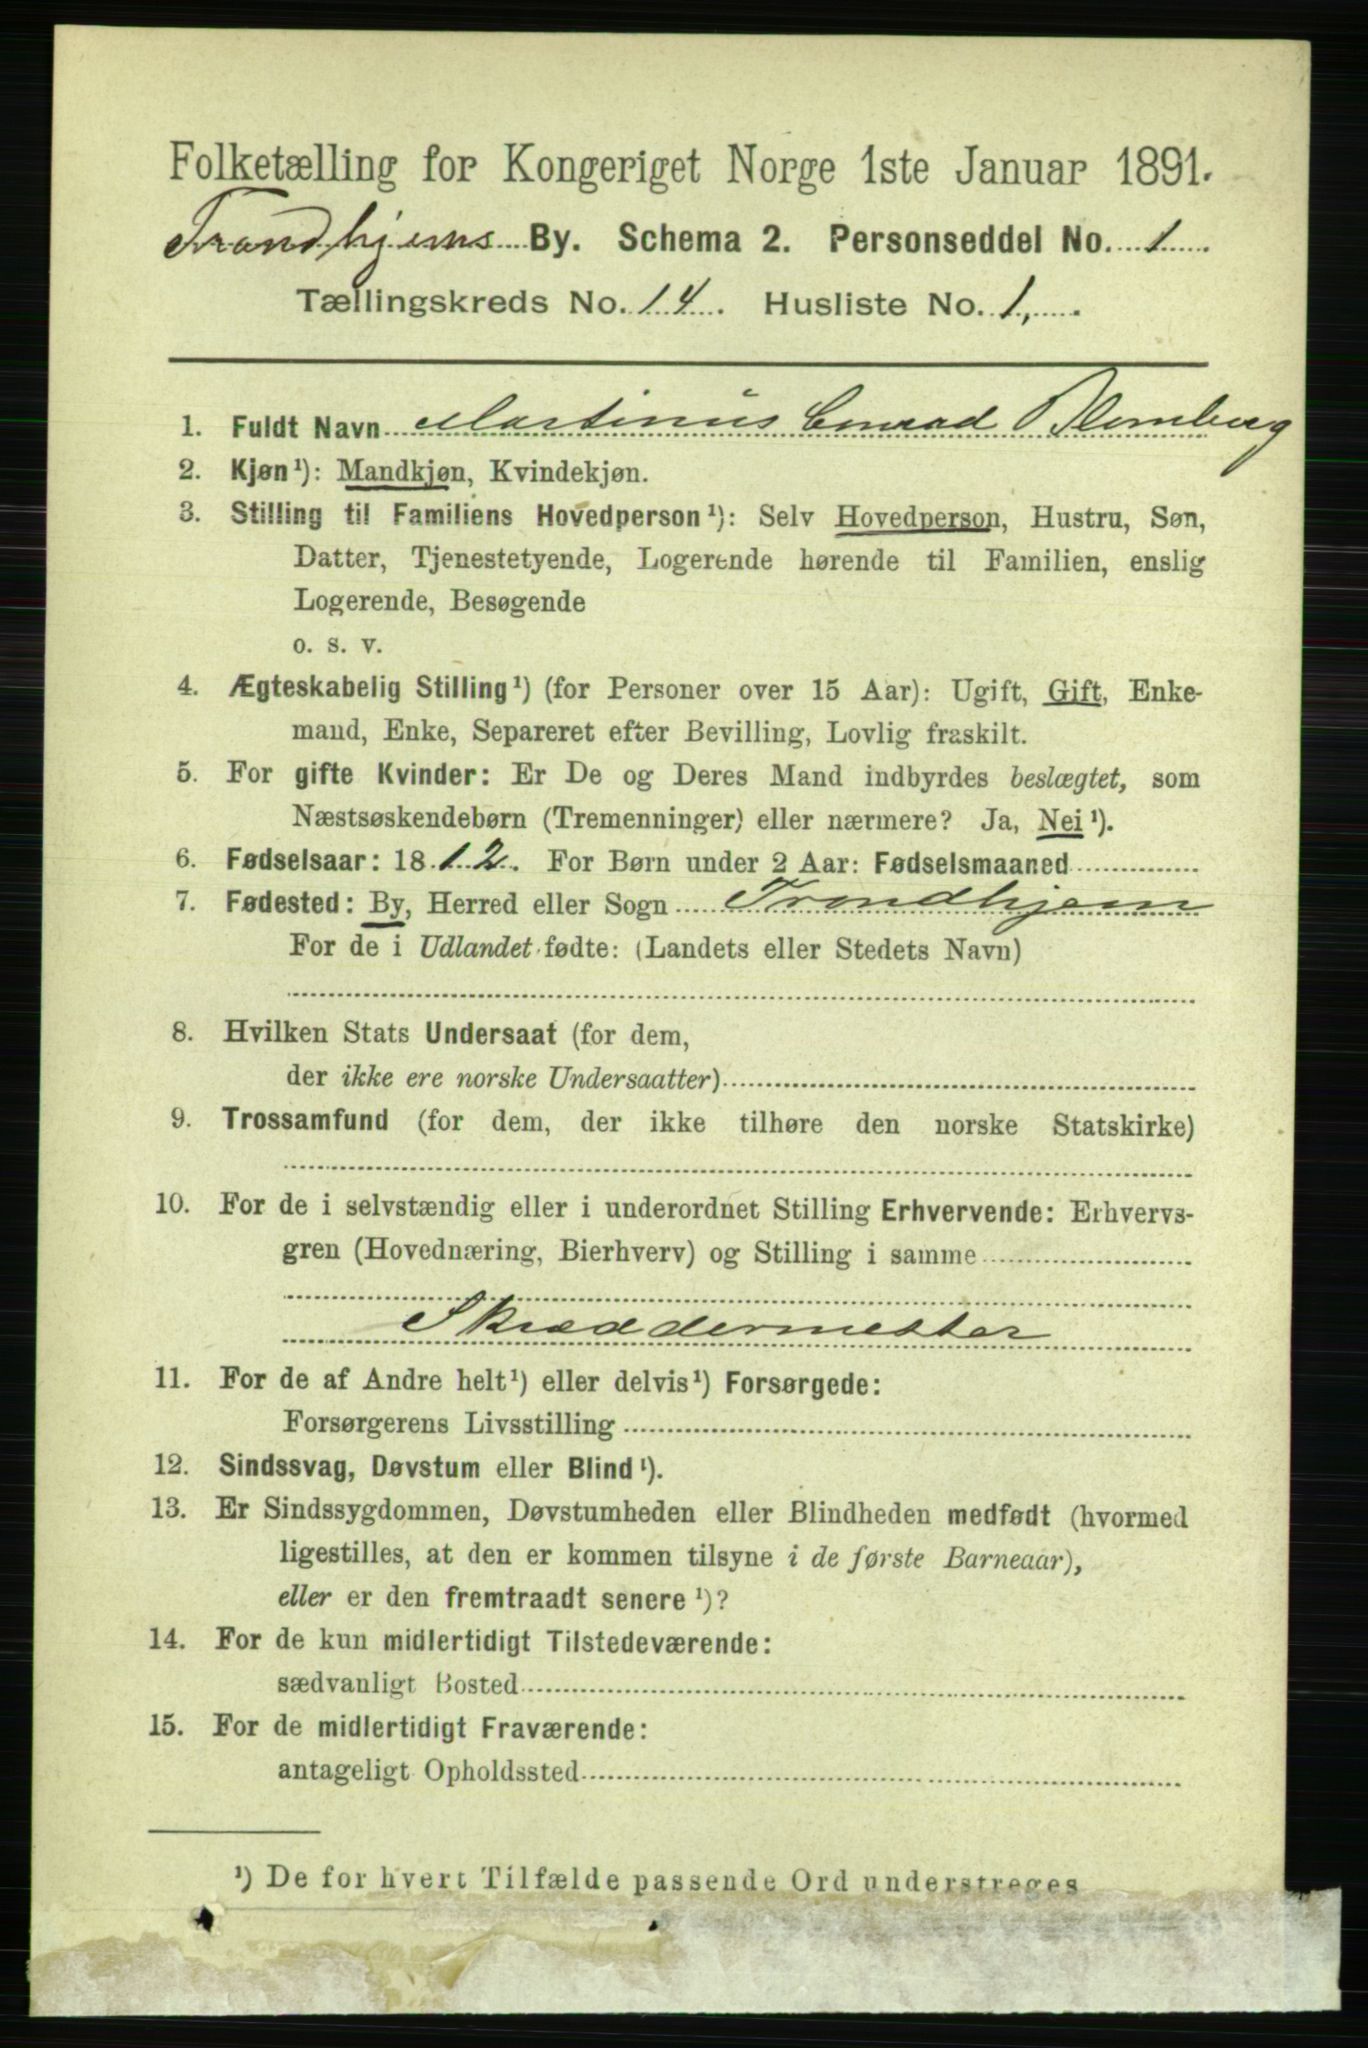 Folketælling for Kongeriget Norge 1ste Januar 1891.
Trondhjems By. Schema 2. Personseddel No. 1
Tællingskreds No. 14. Husliste No. 1,
1. Fuldt Navn Martinius Conrad Blomberg
2. Kjøn¹): Mandkjøn, Kvindekjøn.
3. Stilling til Familiens Hovedperson¹): Selv Hovedperson, Hustru, Søn,
Datter, Tjenestetyende, Logerende hørende til Familien, enslig
Logerende, Besøgende
o. s. v.
4. Ægteskabelig Stilling¹) (for Personer over 15 Aar): Ugift, Gift, Enke-
mand, Enke, Separeret efter Bevilling, Lovlig fraskilt.
5. For gifte Kvinder: Er De og Deres Mand indbyrdes beslægtet, som
Næstsøskendebørn (Tremenninger) eller nærmere? Ja, Nei¹).
6. Fødselsaar: 1812. For Børn under 2 Aar: Fødselsmaaned
7. Fødested: By, Herred eller Sogn Trondhjem
For de i Udlandet fødte: (Landets eller Stedets Navn)
8. Hvilken Stats Undersaat (for dem,
der ikke ere norske Undersaatter)
9. Trossamfund (for dem, der ikke tilhøre den norske Statskirke)
10. For de i selvstændig eller i underordnet Stilling Erhvervende: Erhvervs-
gren (Hovednæring, Bierhverv) og Stilling i samme
Skræddermester
11. For de af Andre helt¹) eller delvis¹) Forsørgede:
Forsørgerens Livsstilling
12. Sindssvag, Døvstum eller Blind¹).
13. Er Sindssygdommen, Døvstumheden eller Blindheden medfødt (hvormed
ligestilles, at den er kommen tilsyne i de første Barneaar),
eller er den fremtraadt senere¹)?
14. For de kun midlertidigt Tilstedeværende:
sædvanligt Bosted
15. For de midlertidigt Fraværende:
antageligt Opholdssted
¹) De for hvert Tilfælde passende Ord understreges